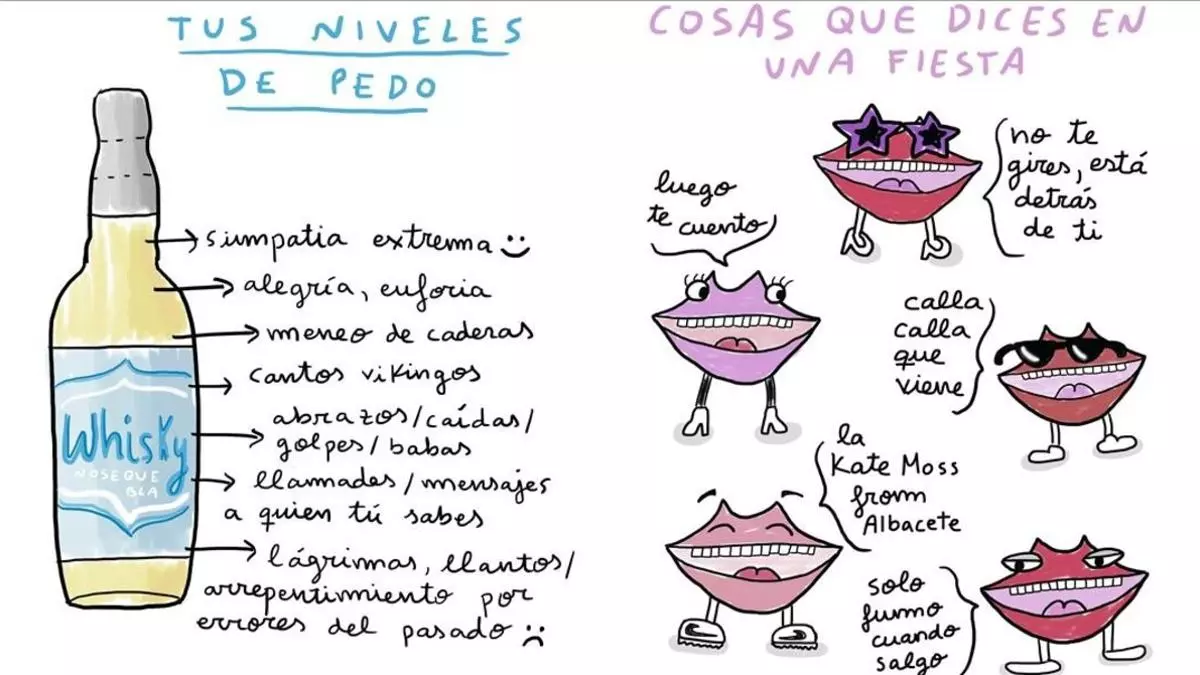 TUS NIVELES
DE PEDO
simpatia extrema
alegría, euforia
meneo de caderas
cantos vikingos
abrazos/caídas/
golpes/babas
llamadas/mensajes
a quien tú sabes
lágrimas, llantos/
arrepentimiento por
errores del pasado
Whisky
NOSEQUE
BLA
COSAS QUE DICES EN
UNA FIESTA
no te
gires, está
detrás
de ti
luego
te cuento
calla
calla
que
viene
la
Kate Moss
from
Albacete
solo
fumo
cuando
salgo